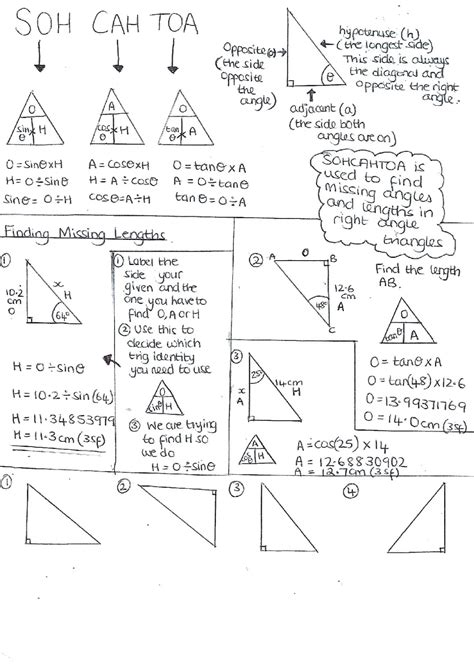 SOH CAH TOA
O
sinθ x H
A
cosθ x H
O
tanθ x A
O = sinθ x H
H = O ÷ sinθ
sinθ = O ÷ H
A = cosθ x H
H = A ÷ cosθ
cosθ = A ÷ H
O = tanθ x A
A = O ÷ tanθ
tanθ = O ÷ A
Opposite (o)
(the side
opposite
the
angle)
θ
hypotenuse (h)
(the longest side)
This side is always
the diagonal and
opposite the right
angle.
adjacent (a)
(the side both
angles are on)
SOHCAHTOA is
used to find
missing angles
and lengths in
right angle
triangles
Finding Missing Lengths
①
10.2
cm
O
x
H
64°
H = O ÷ sinθ
H = 10.2 ÷ sin(64)
H = 11.34853979
H = 11.3cm (3sf)
① Label the
side your
given and the
one you have to
find O, A or H
② Use this to
decide which
trig identity
you need to use
O
sinθ H
③ We are trying
to find H so
we do
H = O ÷ sinθ
②
A
O
B
12.6
cm
A
48°
C
Find the length
AB.
O
tanθ A
O = tanθ x A
O = tan(48) x 12.6
O = 13.99371769
O = 14.0cm (3sf)
③
25°
x
A
14cm
H
A
cosθ H
A = cos(25) x 14
A = 12.68830902
A = 12.7cm (3sf)
①
②
③
④